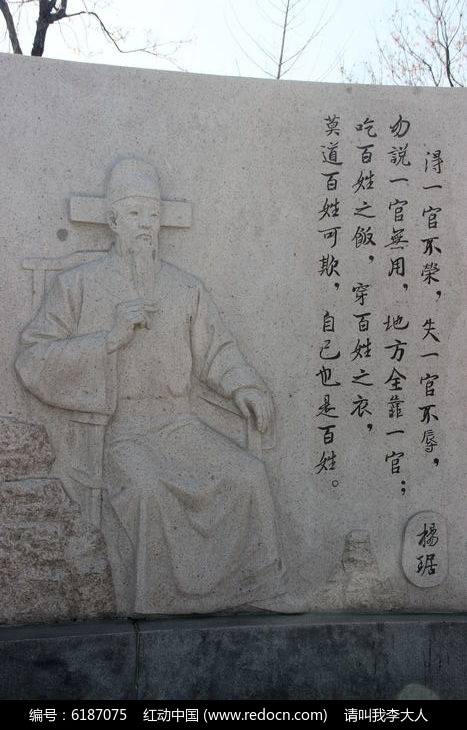 得一官不榮，失一官不辱，
勿説一官無用，地方全靠一官；
吃百姓之飯，穿百姓之衣，
莫道百姓可欺，自己也是百姓。
楊琚
编号：6187075 红动中国 (www.redocn.com) 请叫我李大人